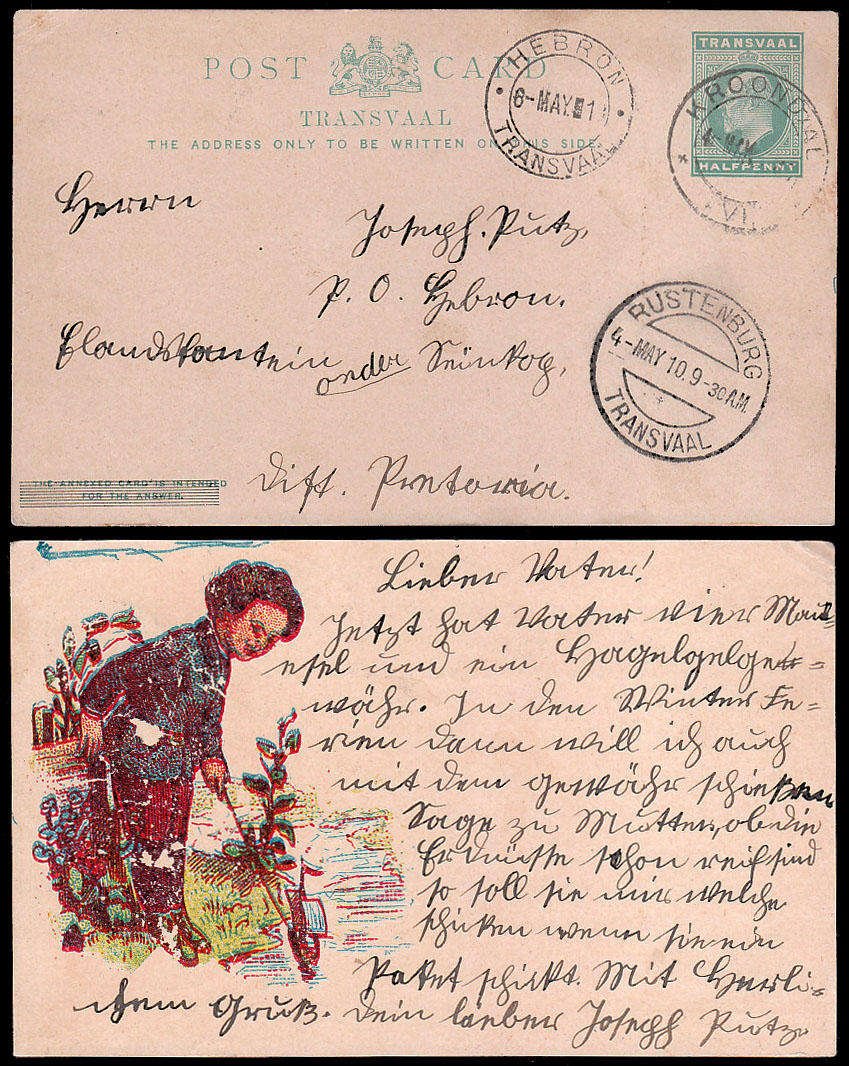 POST CARD
TRANSVAAL
THE ADDRESS ONLY TO BE WRITTEN ON THIS SIDE.
TRANSVAAL
HALFPENNY
HEBRON
6-MAY 1
TRANSVAAL
KROONDAL
VL
Herrn
Joseph. Putz,
P. O. Hebron.
onder
RUSTENBURG
4-MAY 10.9-30AM.
TRANSVAAL
THE ANNEXED CARD IS INTENDED
FOR THE ANSWER.
Dist. Pretoria.
Lieber Vater!
Jetzt hat Vater vier Maul-
esel und ein
währ. In den Winter Fe-
rien dann will ich auch
mit dem gewähr schießen
Sage zu Mutter, ob die
Erdnüsse schon reif sind
so soll sie mir welche
schicken wenn sie ein
Paket schickt. Mit Herli-
chem Gruß. Dein lieber Joseph Putz